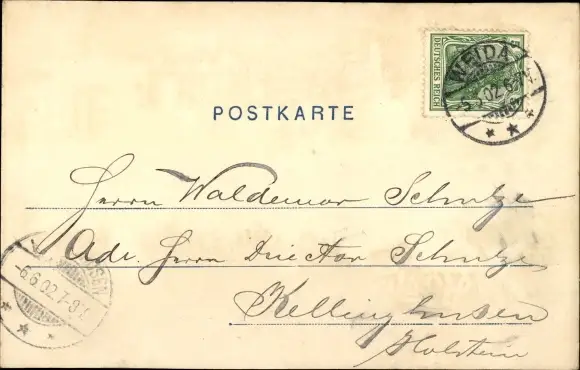 DEUTSCHES REICH
WEIDA
02.6
POSTKARTE
Herrn Waldemar Schulze
Adr. Herrn Director Schulze
Kellinghusen
Holstein
6.6.02.7-8